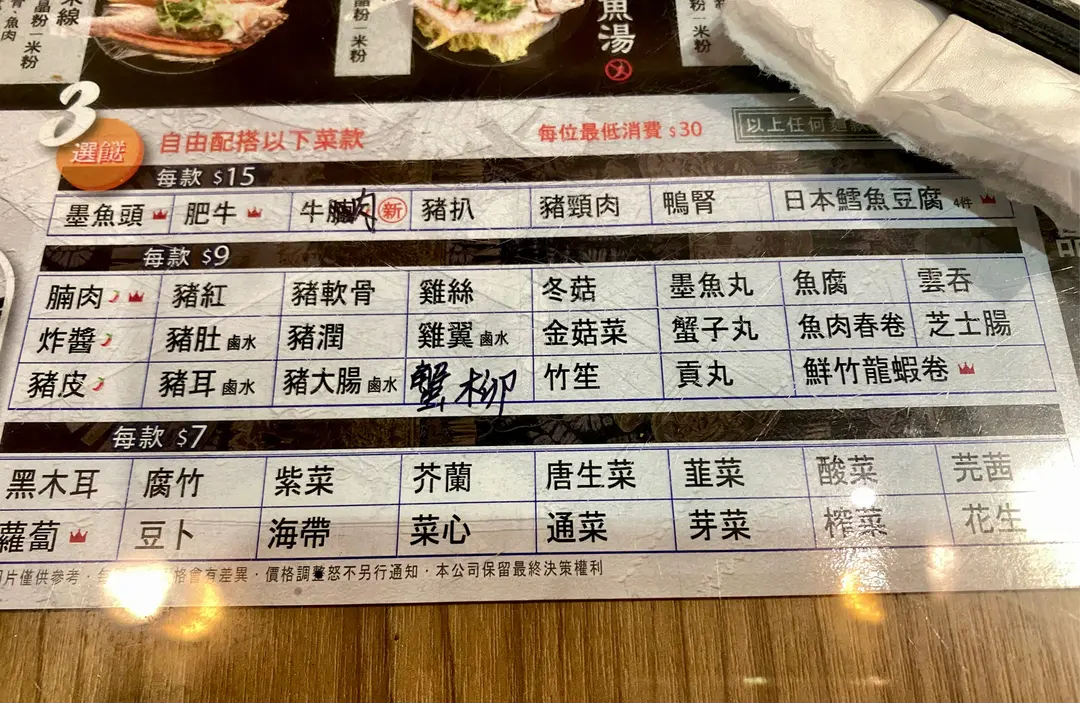 米線
骨、魚肉
晶粉｜米粉
晶粉｜米粉
魚湯
米粉
3
選餸
自由配搭以下菜款
每位最低消費 $30
以上任何
每款 $15
墨魚頭 肥牛 牛肉 新 豬扒 豬頸肉 鴨腎 日本鱈魚豆腐 4件
每款 $9
腩肉 豬紅 豬軟骨 雞絲 冬菇 墨魚丸 魚腐 雲吞
炸醬 豬肚 鹵水 豬潤 雞翼 鹵水 金菇菜 蟹子丸 魚肉春卷 芝士腸
豬皮 豬耳 鹵水 豬大腸 鹵水 蟹柳 竹笙 貢丸 鮮竹龍蝦卷
每款 $7
黑木耳 腐竹 紫菜 芥蘭 唐生菜 韮菜 酸菜 芫茜
蘿蔔 豆卜 海帶 菜心 通菜 芽菜 榨菜 花生
片僅供參考，格會有差異，價格調整恕不另行通知，本公司保留最終決策權利